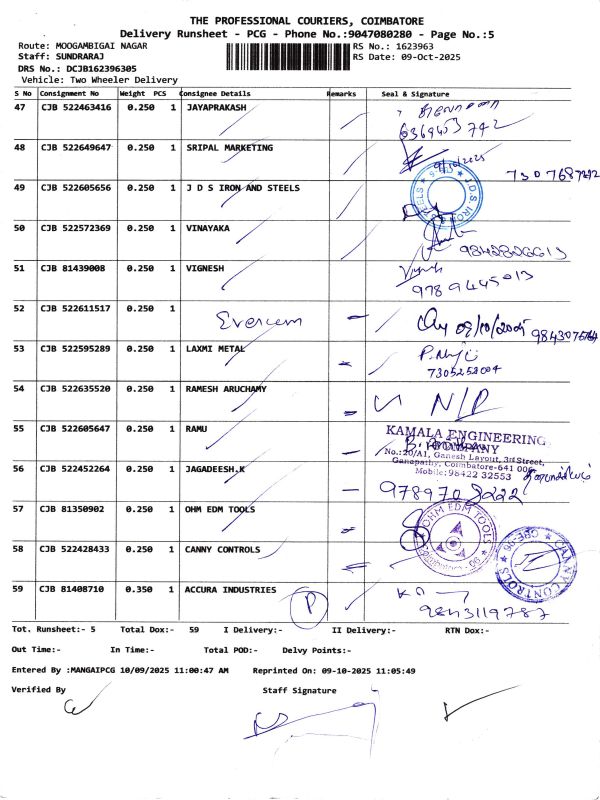 THE PROFESSIONAL COURIERS, COIMBATORE
Delivery Runsheet - PCG - Phone No.:9047080280 - Page No.:5
Route: MOOGAMBIGAI NAGAR RS No.: 1623963
Staff: SUNDRARAJ RS Date: 09-Oct-2025
DRS No.: DCJB162396305
Vehicle: Two Wheeler Delivery
S No Consignment No Weight PCS Consignee Details Remarks Seal & Signature
47 CJB 522463416 0.250 1 JAYAPRAKASH
6369453742
48 CJB 522649647 0.250 1 SRIPAL MARKETING
9/10/2025
49 CJB 522605656 0.250 1 J D S IRON AND STEELS
50 CJB 522572369 0.250 1 VINAYAKA
51 CJB 81439008 0.250 1 VIGNESH
9789445013
52 CJB 522611517 0.250 1 Evercem 09/10/2025
53 CJB 522595289 0.250 1 LAXMI METAL
7305258004
54 CJB 522635520 0.250 1 RAMESH ARUCHAMY N/P
55 CJB 522605647 0.250 1 RAMU
KAMALA ENGINEERING
COMPANY
No.:20/A1, Ganesh Layout, 3rd Street,
Ganapathy, Coimbatore-641 006
Mobile: 98422 32553
56 CJB 522452264 0.250 1 JAGADEESH.K
9789708222
57 CJB 81350902 0.250 1 OHM EDM TOOLS
OHM EDM TOOLS
58 CJB 522428433 0.250 1 CANNY CONTROLS
CANNY CONTROLS
59 CJB 81408710 0.350 1 ACCURA INDUSTRIES
P
9843119787
Tot. Runsheet:- 5 Total Dox:- 59 I Delivery:- II Delivery:- RTN Dox:-
Out Time:- In Time:- Total POD:- Delvy Points:-
Entered By :MANGAIPCG 10/09/2025 11:00:47 AM Reprinted On: 09-10-2025 11:05:49
Verified By Staff Signature